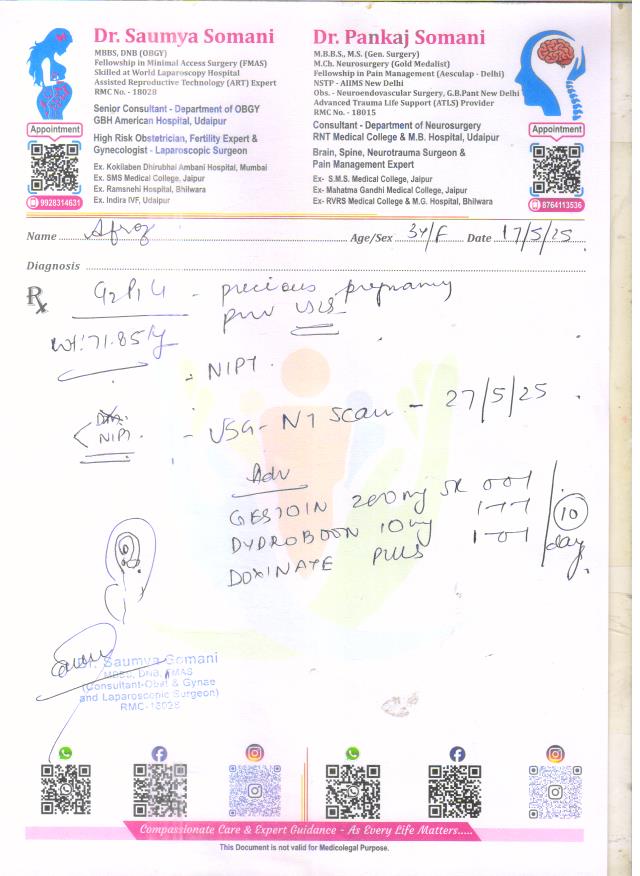 Dr. Saumya Somani
MBBS, DNB (OBGY)
Fellowship in Minimal Access Surgery (FMAS)
Skilled at World Laparoscopy Hospital
Assisted Reproductive Technology (ART) Expert
RMC No. - 18028
Senior Consultant - Department of OBGY
GBH American Hospital, Udaipur
High Risk Obstetrician, Fertility Expert &
Gynecologist - Laparoscopic Surgeon
Ex. Kokilaben Dhirubhai Ambani Hospital, Mumbai
Ex. SMS Medical College, Jaipur
Ex. Ramsnehi Hospital, Bhilwara
Ex. Indira IVF, Udaipur
Appointment
9928314631
Dr. Pankaj Somani
M.B.B.S., M.S. (Gen. Surgery)
M.Ch. Neurosurgery (Gold Medalist)
Fellowship in Pain Management (Aesculap - Delhi)
NSTP - AIIMS New Delhi
Obs. - Neuroendovascular Surgery, G.B.Pant New Delhi
Advanced Trauma Life Support (ATLS) Provider
RMC No. - 18015
Consultant - Department of Neurosurgery
RNT Medical College & M.B. Hospital, Udaipur
Brain, Spine, Neurotrauma Surgeon &
Pain Management Expert
Ex- S.M.S. Medical College, Jaipur
Ex- Mahatma Gandhi Medical College, Jaipur
Ex- RVRS Medical College & M.G. Hospital, Bhilwara
Appointment
8764113536
Name Afroz Age/Sex 34/F Date 17/5/25
Diagnosis
Rx G2P1L1 - precious pregnancy
prev LSCS
Wt: 71.85 kg
- NIPT.
NIPT. - USG - NT scan - 27/5/25
Adv
GESTOIN 200mg SR 0-0-1
DYDROBOON 10mg 1-1-1 10
DOXINATE PLUS 1-0-1 day
Dr. Saumya Somani
MBBS, DNB, FMAS
(Consultant-Obst & Gynae
and Laparoscopic Surgeon)
RMC-18028
Compassionate Care & Expert Guidance - As Every Life Matters.....
This Document is not valid for Medicolegal Purpose.